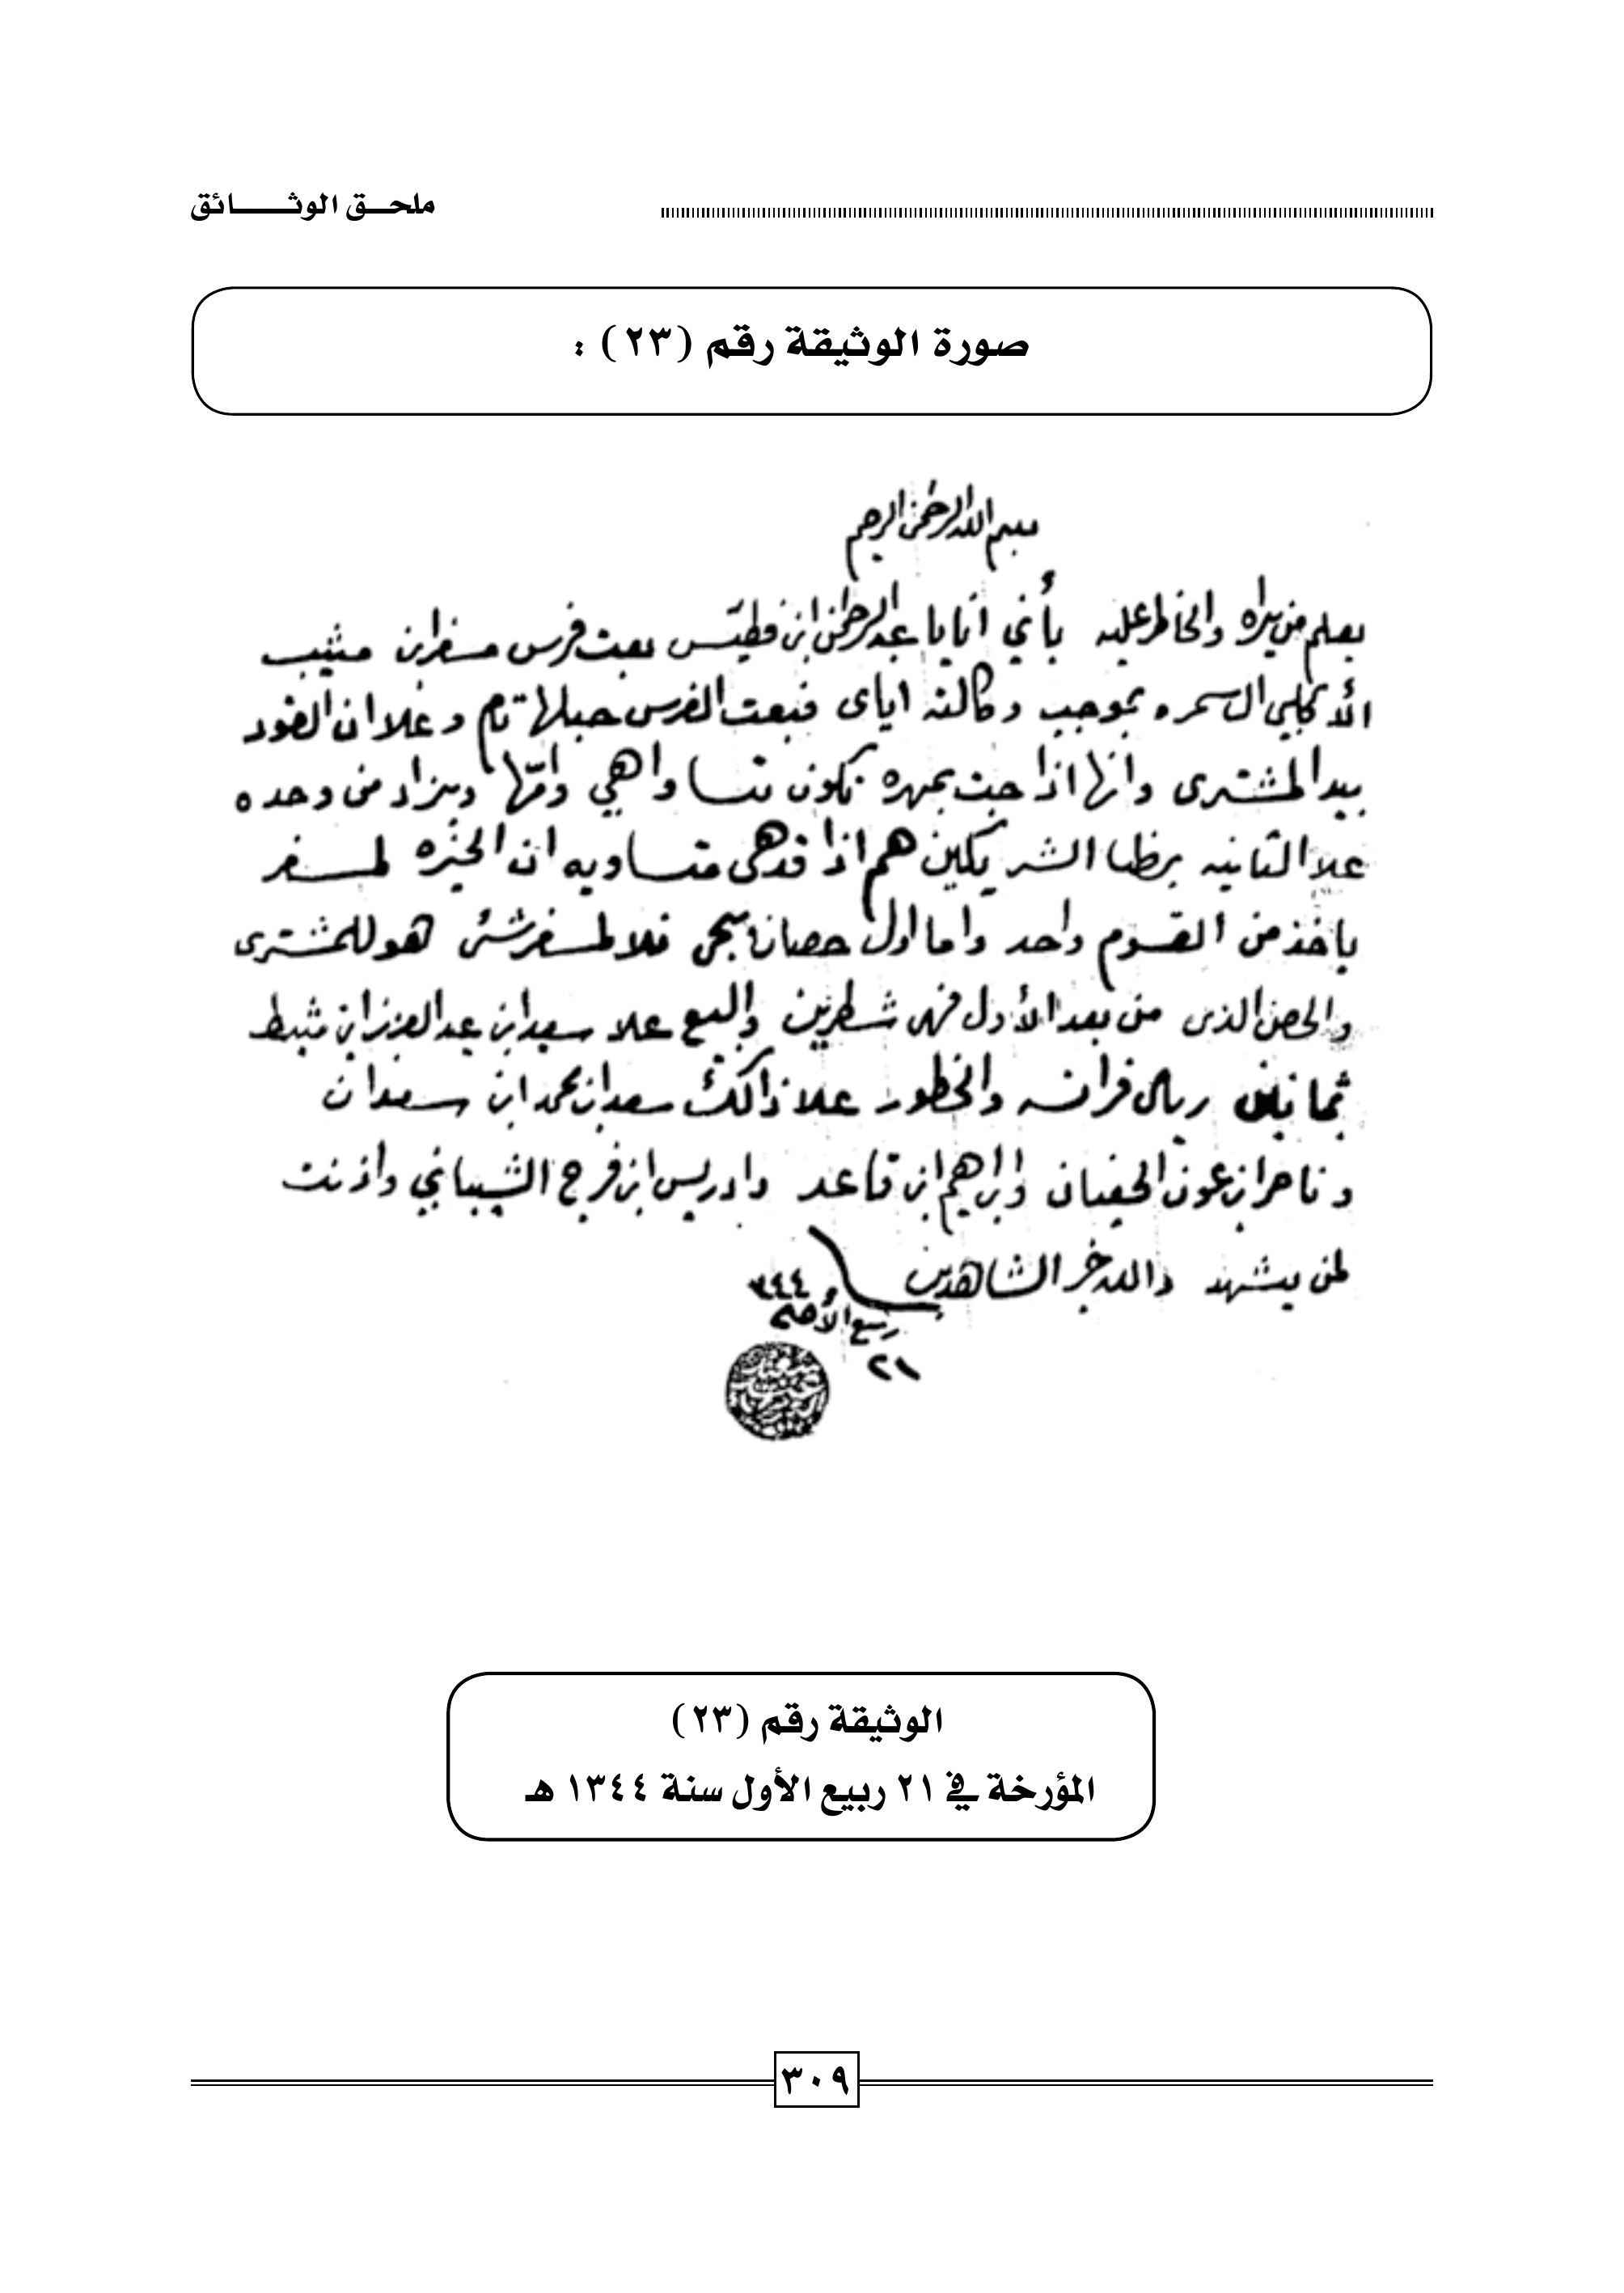 ملحق الوثائق
صورة الوثيقة رقم (٢٣) :
بسم الله الرحمن الرحيم
يعلم من يراه والخاطر عليه بأني انايا عبد الرحمن ابن فطيس بعت فرس مسفر ابن مثيب
الأكلبي السمره بموجب وكالته اياى فبعت الفرس حبلها تام وعلا ان القود
بيد المشترى وانها اذا جبت بمهره تكون تتساوا هي وامّها ويزاد من وحده
علا الثانيه برظا الشريكين هم اذا قدهى متساويه ان الخيره لمسفر
ياخذ من القسوم واحد واما اول حصان يجى فلا لمسفر شئ هو للمشترى
والحصن الذى من بعد الأول فهى شطرين والبيع علا سعيد ابن عبد العزيز ابن مشيط
ثمانين ريال فرانسه والخطور علا ذالك سعد ابن محمد ابن سعدان
وناصر ابن عون الحفيان وابراهيم ابن قاعد وادريس ابن فرج الشيباني واذنت
لمن يشهد والله خير الشاهدين
٣٤٤
ربيع الأول
٢١
الوثيقة رقم (٢٣)
المؤرخة في ٢١ ربيع الأول سنة ١٣٤٤ هـ
٣٠٩